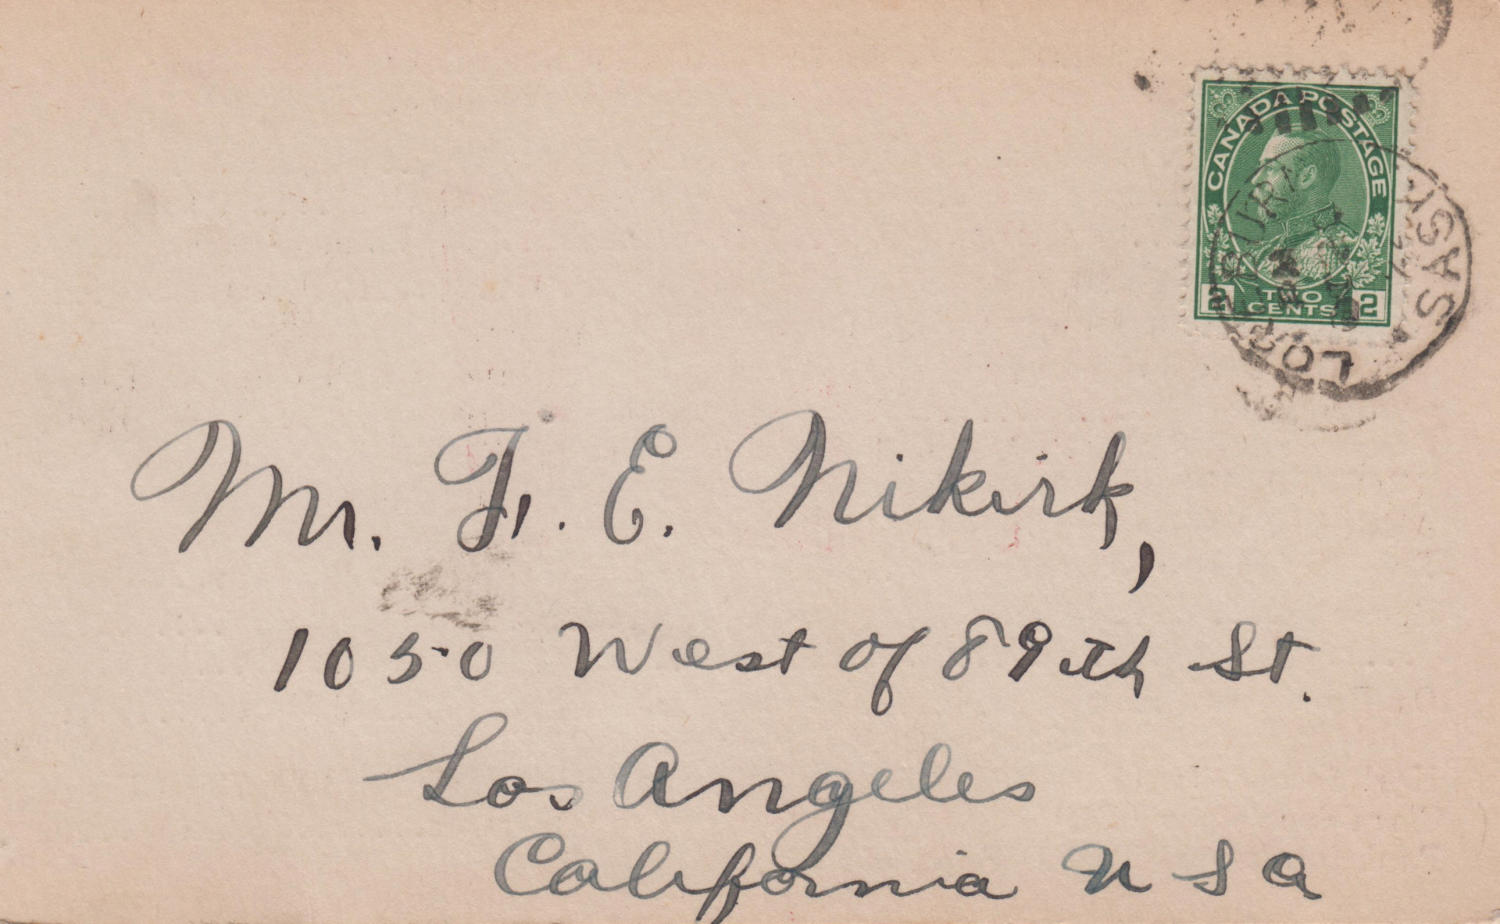 CANADA POSTAGE
2 TWO CENTS 2
SASK
Mr. F. E. Nikirk,
1050 West of 89th St.
Los Angeles
California U S A